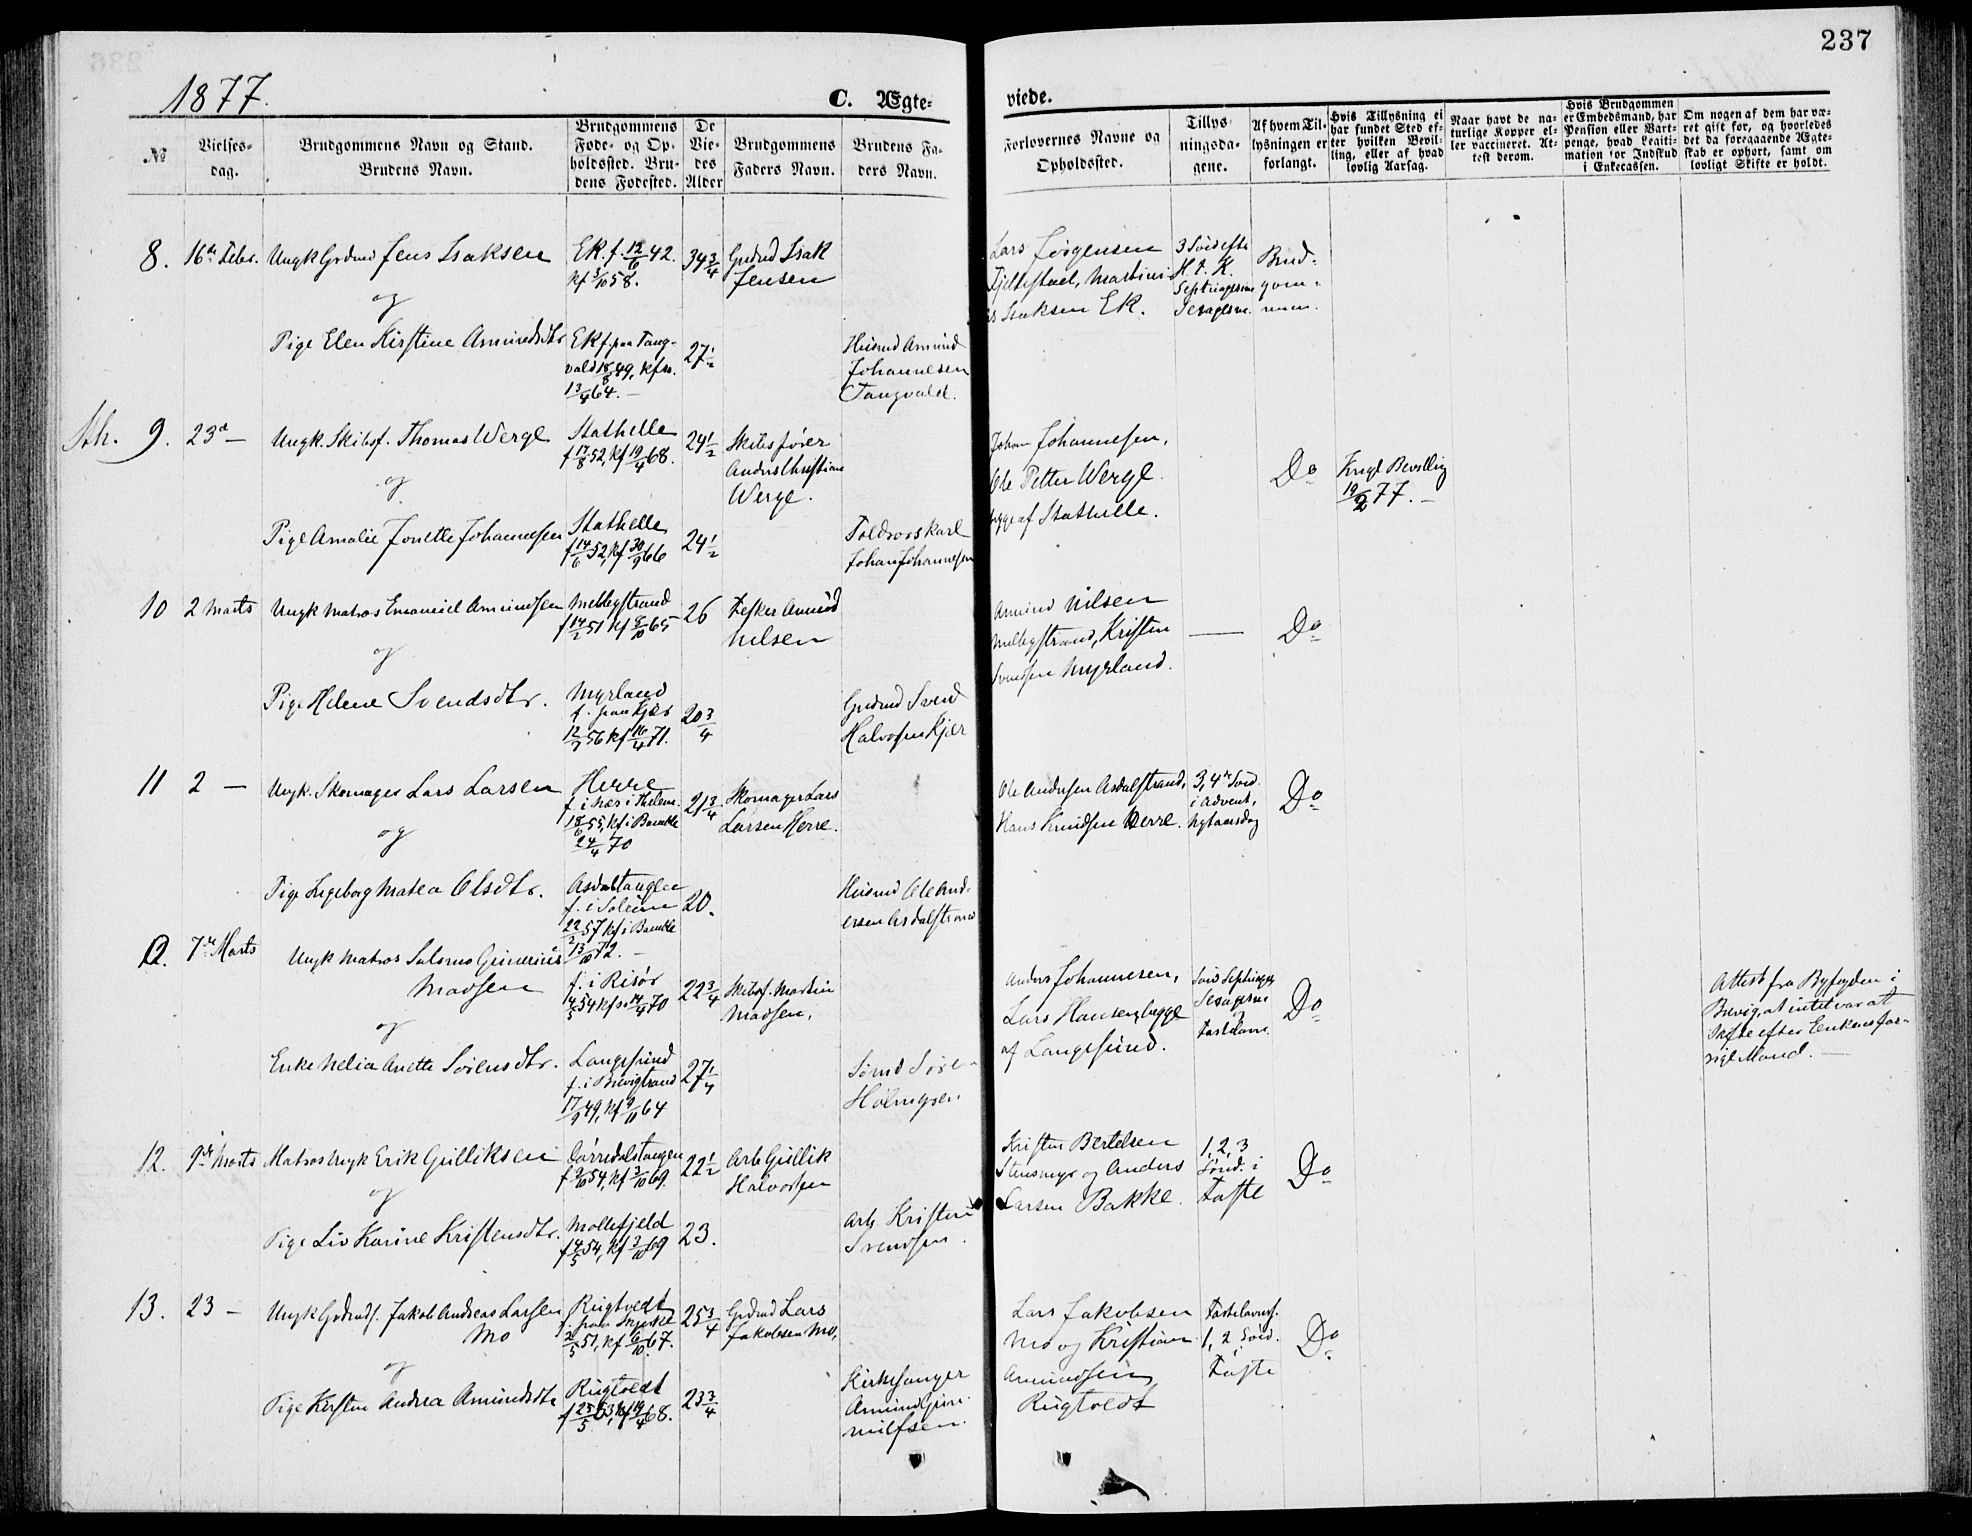 237
1877.
C. Ægte=
viede.
№
Vielses=
dag.
Brudgommens Navn og Stand.
Brudens Navn.
Brudgommens
Føde- og Op-
holdssted. Bru-
dens Fødested.
De
Vie-
des
Alder
Brudgommens
Faders Navn.
Brudens Fa-
ders Navn.
Forlovernes Navne og
Opholdssted.
Tillys-
ningsda-
gene.
Af hvem Til-
lysningen er
forlangt.
Hvis Tillysning ei
har fundet Sted ef-
ter hvilken Bevil-
ling, eller af hvad
lovlig Aarsag.
Naar havt de na-
turlige Kopper el-
ler vaccineret. At-
test derom.
Hvis Brudgommen
er Embedsmand, har
Pension eller Vart-
penge, hvad Legiti-
mation for Indskud
i Enkecassen.
Om nogen af dem har væ-
ret gift før, og hvorledes
det da foregaaende Ægte-
skab er ophørt, samt om
lovligt Skifte er holdt.
8. 16de Febr. Ungk Grdmd Jens Isaksen
og
Ek f. 12/6 42.
kf 3/10 58.
34 3/4
Grdmd Isak
Jensen
Lars Jørgensen
Fjellestad, Martini-
us Isaksen Ek.
3 Sønd efte
H. 3. K.
Septuagesima
Sexagesim.
Brud-
gom-
men.
Pige Elen Kirstine Amundsdtr
Ek f. paa Tang-
vald 18/8 49, kf s.
13/4 64.
27 1/2
Husmd Amund
Johannesen
Tangvald.
Sth. 9. 23d — Ungk. Skibsf. Thomas Werge
og
Stathelle
f 17/8 52, kf 19/4 68.
24 1/2
Skibsfører
Anders Christian
Werge.
Johan Johannesen,
Ole Petter Werge
begge af Stathelle.
Do
Kngl Bevilling
19/2 77.
Pige Amalie Jonette Johannesen
Stathelle
f 14/6 52, kf 30/9 66
24 1/2
Toldroerskarl
Johan Johannesen
10 2 Marts Ungk Matros Emanuel Amundsen
og
Melbystrand
f 14/2 51 kf 8/10 65
26
Fisker Amund
Nilsen
Amund Nilsen
Melbystrand, Kristen
Svendsen Myrland.
—
Do
Pige Helene Svendsdtr.
Myrland
f. paa Kjær
12/7 56 kf 16/4 71.
20 3/4
Grdmd Svend
Halvorsen Kjær
11 2 — Ungk. Skomager Lars Larsen
og
Herre
f. i Næs i Thelem.
18/6 55, kf i Bamble
24/4 70
21 3/4
Skomager Lars
Larsen Herre.
Ole Andersen Asdalstrand,
Hans Knudsen Herre.
3, 4de Sønd.
i Advent,
Nytaarsdag
Do
Pige Ingeborg Matea Olsdtr.
Asdalstangen
f. i Soleim
22/2 57 kf i Bamble
13/10 72.
20.
Husmd Ole And-
ersen Asdalstrand
12. 7de Marts Ungk Matros Salomo Gunerius
Madsen
og
f. i Risør
4/5 54 kf s. 14/4 70
22 3/4
Skibsf. Martin
Madsen.
Anders Johannesen,
Lars Hansen, begge
af Langesund.
Sønd Septuages
Sexagesim
Fastelavn.
Do
Attest fra Byfogden i
Brevig, at intet var at
skifte efter Enkens for-
rige Mand.
Enke Nelia Anette Sørensdtr.
Langesund
f. i Brevigstrand
17/9 49, kf 9/11 64
27 1/4
Sømd Søren
Holmgsen
12. 9de Marts Matros Ungk Erik Gulliksen
og
Cørredalstangen
f 9/10 54, kf 3/10 69.
22 1/2
Arb Gullik
Halvorsen
Kristen Bertelsen
Stensmyr og Anders
Larsen Bakke.
1, 2, 3
Sønd. i
Faste
Do
Pige Liv Karine Kristensdtr.
Mollefjeld
f 4/5 54, kf 3/10 69
23.
Arb. Kristen
Svendsen.
13. 23 — Ungk Grdmds. Jakob Andreas Larsen
Mo
og
Rugtvedt
f. paa
2/5 51, kf 6/10 67.
25 3/4
Grdmd Lars
Jakobsen Mo,
Lars Jakobsen
Mo og Kristian
Amundsen
Rugtvedt
Fastelavns.
1, 2 Sønd.
Faste
Do
Pige Kirstine Andrea Amundsdtr
Rugtvedt
f 25/5 53, kf 19/4 68.
23 3/4
Kirkesanger
Amund Gun-
nulfsen.